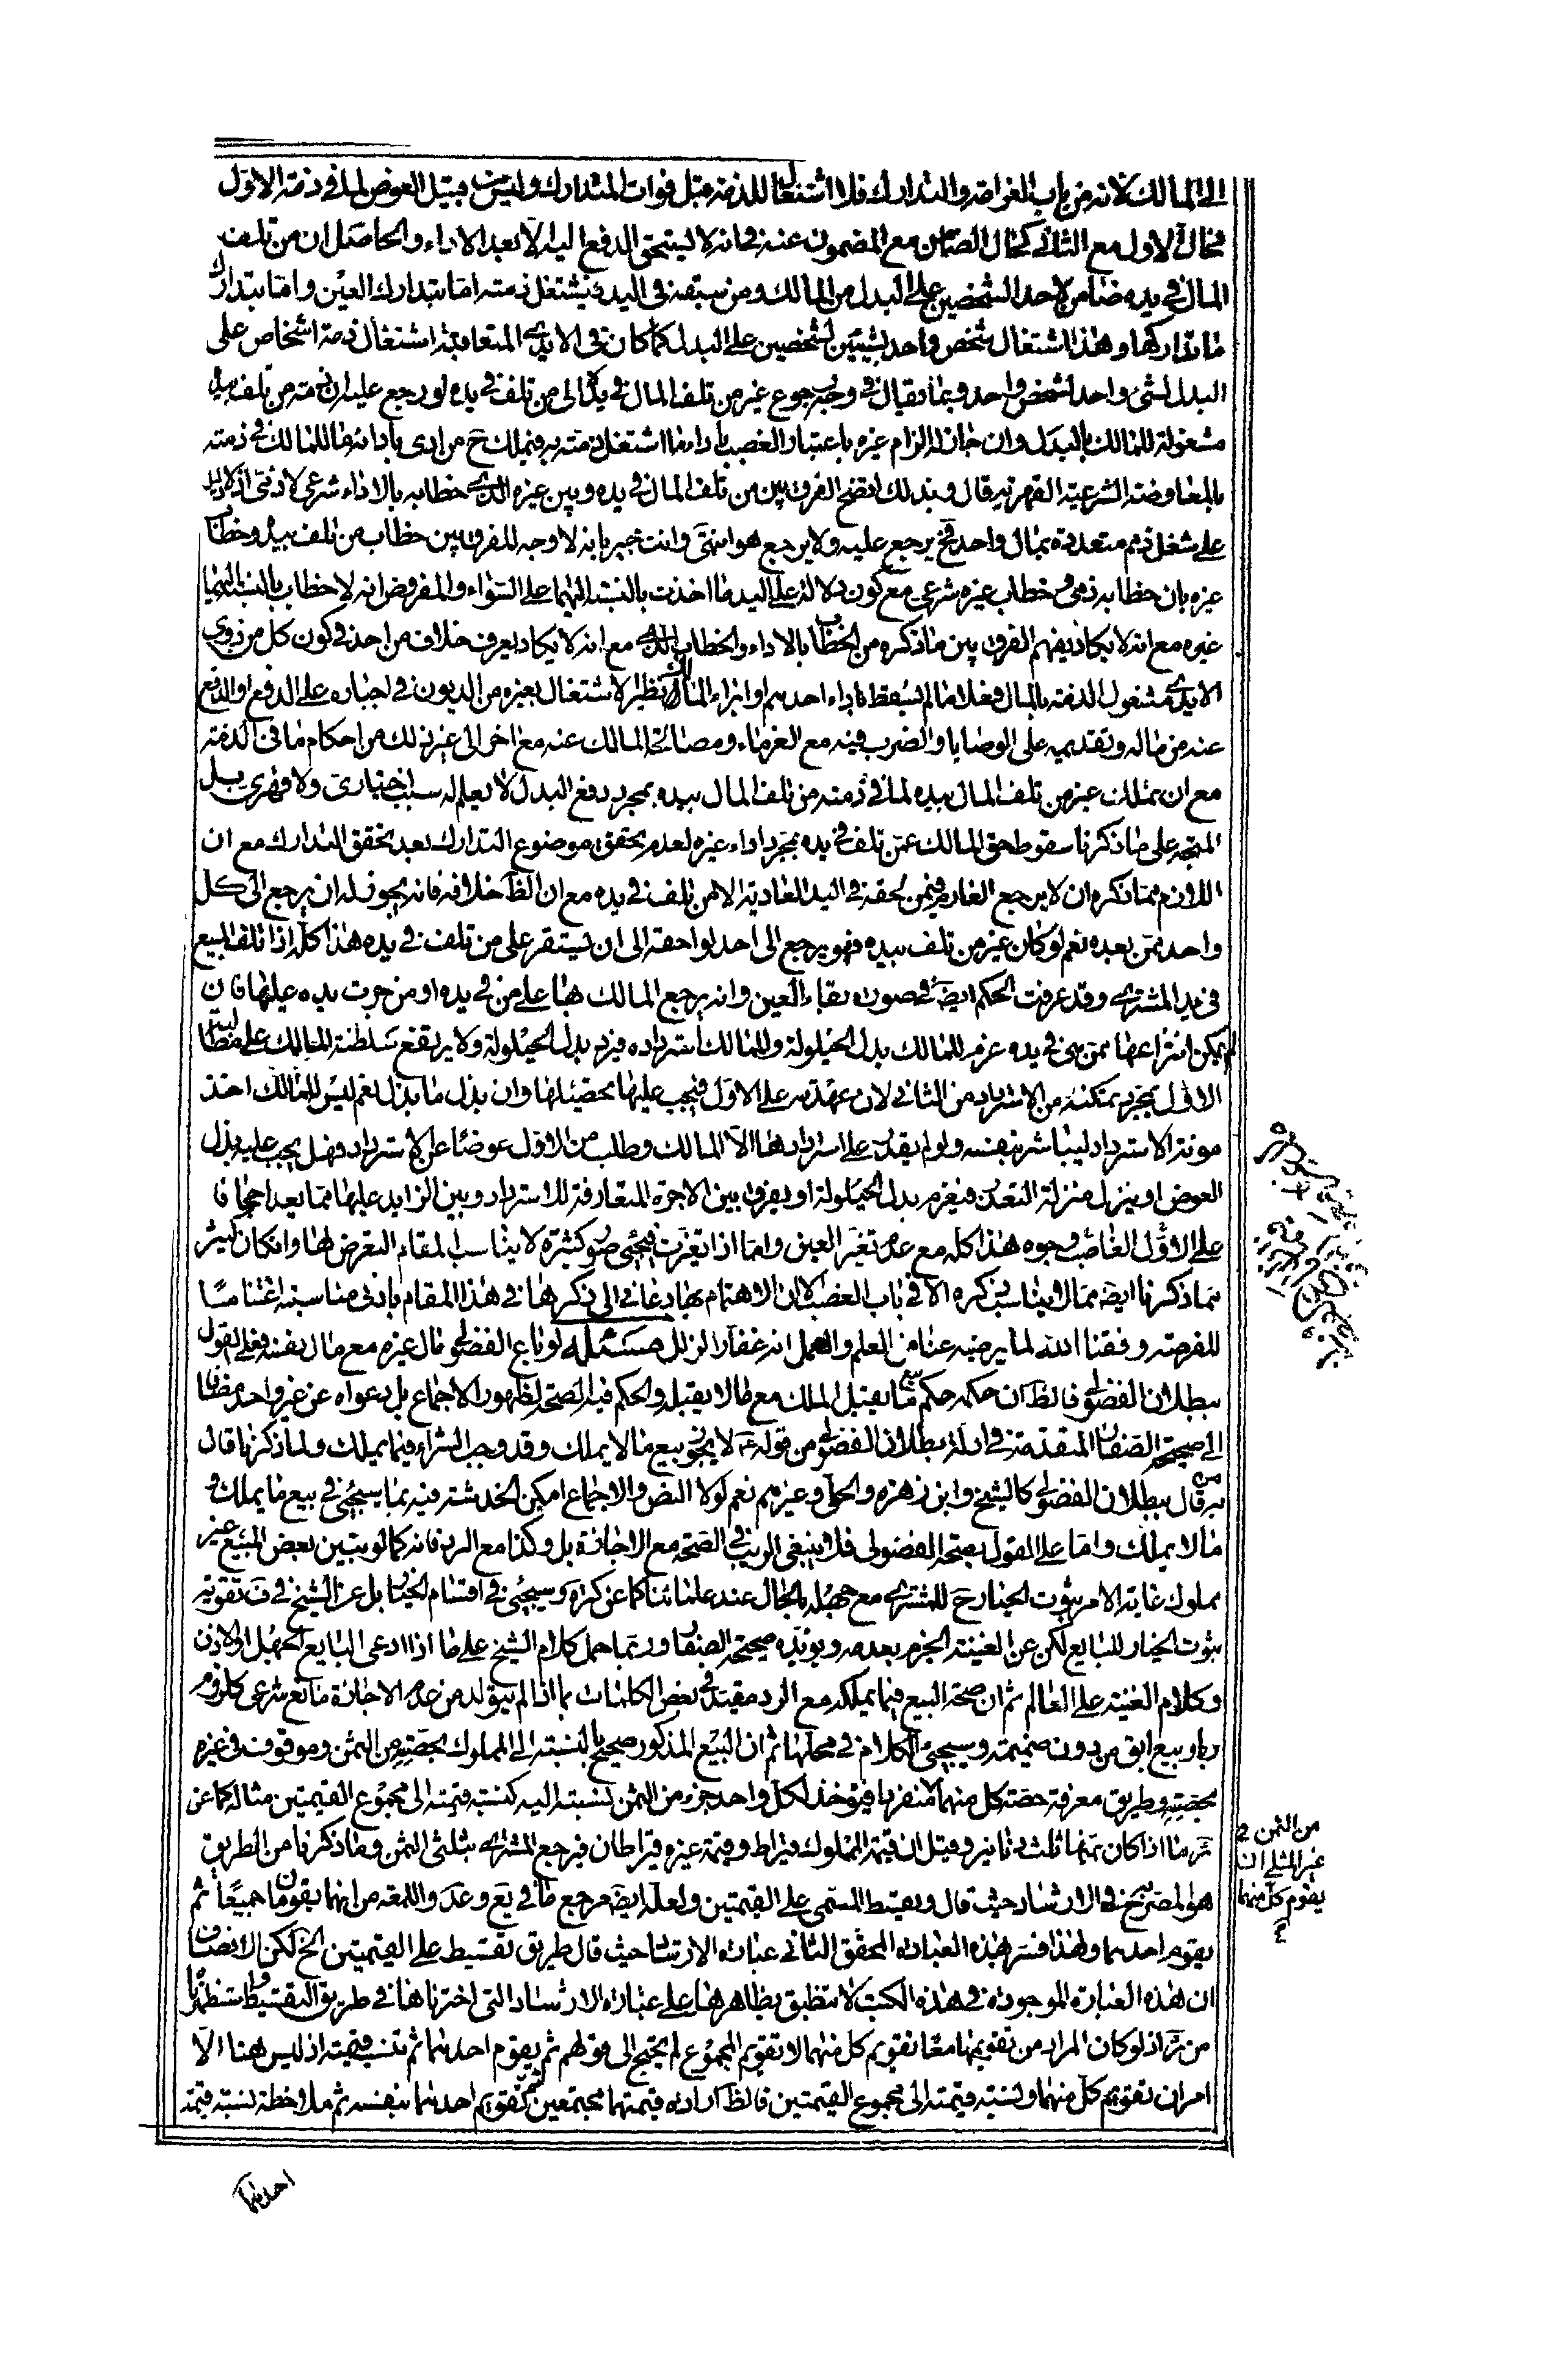 الى المالك لانه من باب الغرامة والتدارك فلا اشتغال للذمة قبل فوات المتدارك وليس من قبيل العوض لما فى ذمة الاول
فحال الاول مع الثانى كحال الضامن مع المضمون عنه فى انه لا يستحق الدفع اليه الا بعد الاداء والحاصل ان من تلف
المال فى يده ضامن لاحد الشخصين على البدل من المالك ومن سبقه فى اليد فيشتغل ذمته اما بتدارك العين واما بتدارك
ما تداركها وهذا اشتغال شخص واحد بشيئين لشخصين على البدل كما كان فى الايدى المتعاقبة اشتغال ذمة اشخاص على
البدل لشئ واحد لشخص واحد وربما يقال فى وجه رجوع غير من تلف المال فى يده الى من تلف فى يده لو رجع عليه ان ذمة من تلف بيده
مشغولة للمالك بالبدل وان جاز له الزام غيره باعتبار الغصب باداء ما اشتغل ذمته به فيملك ح من ادى بادائه ما للمالك فى ذمته
بالمعاوضة الشرعية القهرية قال وبذلك اتضح الفرق بين من تلف المال فى يده وبين غيره الذى خطابه بالاداء شرعى لا ذمى اذ لا دليل
على شغل ذمم متعددة بمال واحد فح يرجع عليه ولا يرجع هو انتهى وانت خبير بانه لا وجه للفرق بين خطاب من تلف بيده وخطاب
غيره بان خطابه ذمى وخطاب غيره شرعى مع كون دلالة على اليد ما اخذت بالنسبة اليهما على السواء والمفروض انه لا خطاب بالنسبة اليهما
غيره مع انه لا يكاد يفهم الفرق بين ما ذكره من الخطاب بالاداء والخطاب الذمى مع انه لا يكاد يعرف خلاف من احد فى كون كل من ذوى
الايدى مشغول الذمة بالمال فعلا ما لم يسقط باداء احدهم او ابراء المالك نظير الاشتغال بغيره من الديون فى اجباره على الدفع او الدفع
عنه من ماله وتقديمه على الوصايا والضرب فيه مع الغرماء ومصالحة المالك عنه مع اخر الى غير ذلك من احكام ما فى الذمة
مع ان تملك غير من تلف المال بيده لما فى ذمة من تلف المال بيده بمجرد دفع البدل لا يعلم له سبب اختيارى ولا قهرى بل
المتجه على ما ذكرنا سقوط حق المالك عمن تلف فى يده بمجرد اداء غيره لعدم تحقق موضوع التدارك بعد تحقق التدارك مع ان
اللازم مما ذكره ان لا يرجع الغارم فيمن لحقه فى اليد العادية الا من تلف فى يده مع ان الظ خلافه فانه يجوز له ان يرجع الى كل
واحد ممن بعده نعم لو كان غير من تلف بيده فهو يرجع الى احد لواحقه الى ان يستقر على من تلف فى يده هذا كله اذا تلف المبيع
فى يد المشترى وقد عرفت الحكم ايضا فى صورة بقاء العين وانه يرجع المالك بها على من فى يده او من جرت يده عليها فان
لم يمكن انتزاعها ممن هى فى يده غرم للمالك بدل الحيلولة وللمالك استرداده فيرد بدل الحيلولة ولا يرتفع سلطنة المالك على مطالبة
الاول بمجرد تمكنه من الاسترداد من الثانى لان عهدته على الاول فيجب عليه تحصيلها وان بذل ما بذل نعم ليس للمالك اخذ
مونة الاسترداد ليباشر بنفسه ولو لم يقدر على استردادها الا المالك وطلب من الاول عوضا عن الاسترداد فهل يجب عليه بذل
العوض او ينزل منزلة التعذر فيغرم بدل الحيلولة او يفرق بين الاجرة المتعارفة للاسترداد وبين الزايد عليها مما يعد اجحافا
على الاول الغاصب وجوه هذا كله مع عدم تغير العين واما اذا تغيرت فيجيئ صور كثيرة لا يناسب المقام التعرض لها وان كان كثير
مما ذكرنا ايضه مما لا يناسب ذكره الا فى باب الغصب الا ان الاهتمام بها دعانى الى ذكرها فى هذا المقام بادنى مناسبة اغتناما
للفرصة وفقنا الله لما يرضيه عنا من العلم والعمل انه غفار الزلل مسئلة لو باع الفضولى مال غيره مع مال نفسه فعلى القول
ببطلان الفضولى فالظ ان حكمه حكم بيع ما يقبل الملك مع ما لا يقبله والحكم فيه الصحة لظهور الاجماع بل دعواه عن غير واحد مضافا
الى صحيحة الصفار المتقدمة فى ادلة بطلان الفضولى من قوله ع لا يجوز بيع ما لا يملك وقد وجب الشراء فيما يملك ولما ذكرنا قال
به من قال ببطلان الفضولى كالشيخ وابن زهرة والحلى وغيرهم نعم لولا النص والاجماع امكن الخدشة فيه بما سيجيئ فى بيع ما يملك و
ما لا يملك واما على القول بصحة الفضولى فلا ينبغى الريب فى الصحة مع الاجازة بل وكذا مع الرد فانه كما لو تبين بعض المبيع غير
مملوك غاية الامر ثبوت الخيار ح للمشترى مع جهله بالحال عند علمائنا كما عن كره وسيجيئ فى اقسام الخيار بل عن الشيخ فى ف تقوية
ثبوت الخيار للبايع لكن عن الغنية الجزم بعدمه ويؤيده صحيحة الصفار وربما حمل كلام الشيخ على ما اذا ادعى البايع الجهل او الاذن
وكلام الغنية على العالم ثم ان صحة البيع فيما يملكه مع الرد مقيد فى بعض الكلمات بما اذا لم يتولد من عدم الاجازة مانع شرعى كلزوم
ربا وبيع ابق من دون ضميمة وسيجيئ الكلام فى محلها ثم ان البيع المذكور صحيح بالنسبة الى المملوك بحصته من الثمن وموقوف فى غيره
بحصته وطريق معرفة حصة كل منهما منفردا فيؤخذ لكل واحد جزء من الثمن نسبته اليه كنسبة قيمته الى مجموع القيمتين مثاله كما عن
ئر ما اذا كان ثمنهما ثلثة دنانير وقيل ان قيمة المملوك قيراط وقيمة غيره قيراطان فيرجع المشترى بثلثى الثمن وما ذكرنا من الطريق
هو المصرح به فى الارشاد حيث قال ويقسط المسمى على القيمتين ولعله ايضه مرجع ما فى يع وعد واللمعة من انهما يقومان جميعا ثم
يقوم احدهما ولهذا فسر بهذه العبارة المحقق الثانى عبارة الارشاد حيث قال طريق تقسيط على القيمتين الخ لكن الانصاف
ان هذه العبارة الموجودة فى هذه الكتب لا تنطبق بظاهرها على عبارة الارشاد التى اخترناها فى طريق التقسيط واستظهرناه
من ئر اذ لو كان المراد من تقويمهما معا تقويم كل منهما لا تقويم المجموع لم يحتج الى قولهم ثم يقوم احدهما ثم تنسب قيمته اذ ليس هنا الا
امران تقويم كل منهما ونسبة قيمته الى مجموع القيمتين فالظ ارادة قيمتهما مجتمعين ثم تقويم احدهما بنفسه ثم ملاحظة نسبة قيمة
من الثمن فى
غير المثلى ان
يقوم كل منهما
احدهما